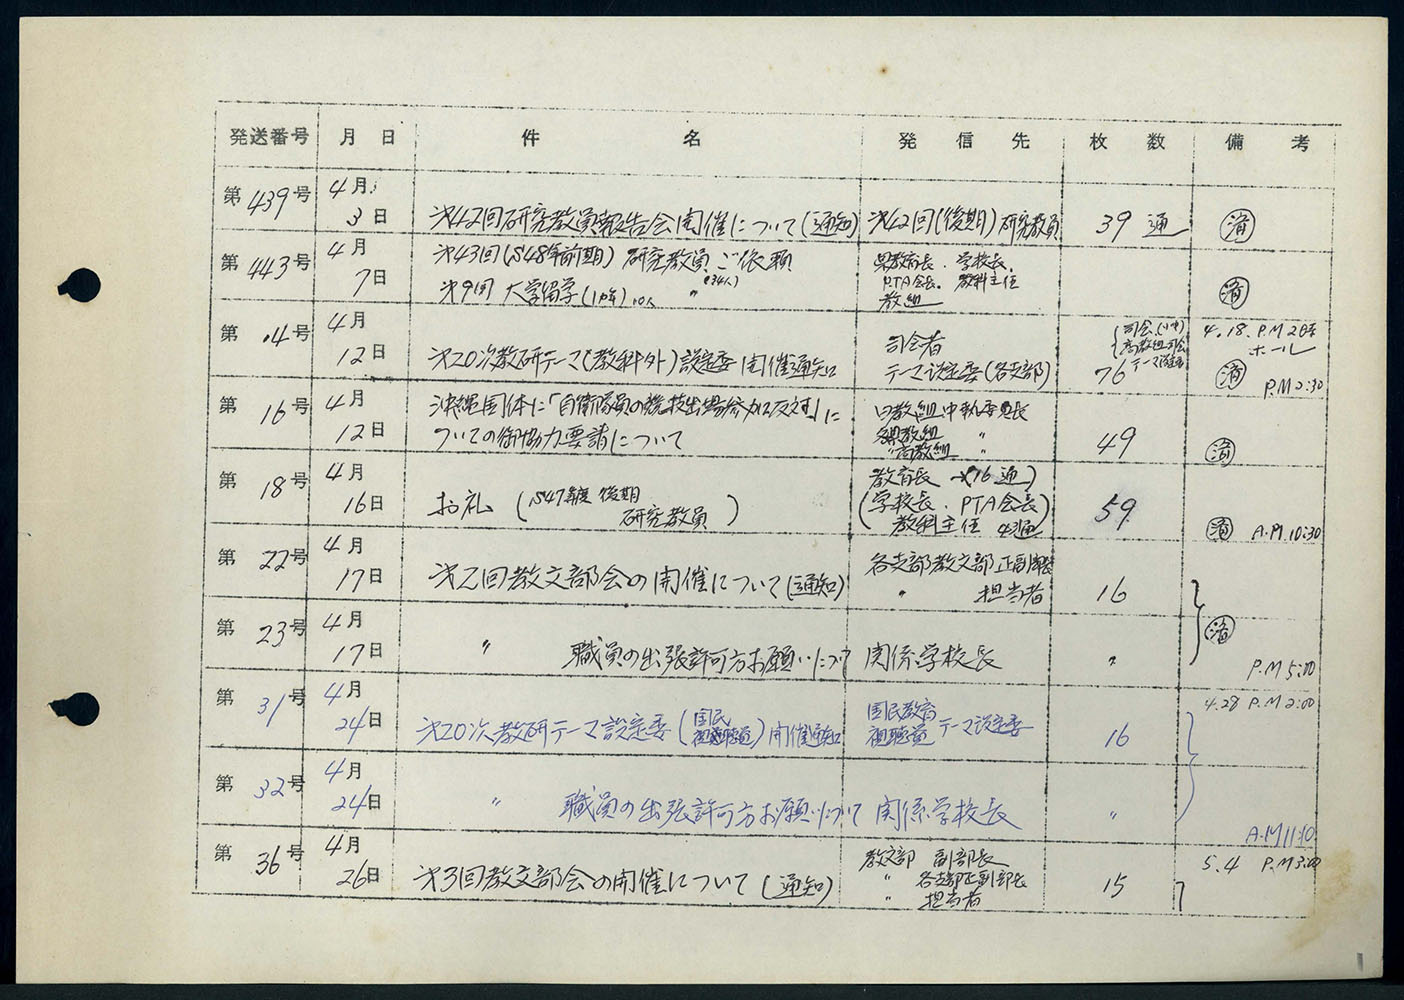 発送番号 月日 件名 発信先 枚数 備考
第439号 4月3日 第42回研究教員報告会開催について(通知) 第42回(後期)研究教員 39通 済
第443号 4月7日 第43回(S48年前期)研究教員ご依頼 県教育長、学校長、 済
(34人) PTA会長、教科主任
第9回大学留学(1ヶ年)10人 〃 教組
第4号 4月12日 第20次教研テーマ(教科外)設定委開催通知 司会者 76 4.18.P.M2時
テーマ設定委(各支部) ホール
済 P.M2:30
第16号 4月12日 沖縄国体に「自衛隊員の競技出場参加反対」に 日教組中執委員長 49 済
ついての御協力要請について 各県教組 〃
〃高教組 〃
第18号 4月16日 お礼(S47年度後期 教育長(16通) 59 済 A.M.10:30
研究教員) (学校長、PTA会長)
教科主任 43通
第22号 4月17日 第2回教文部会の開催について(通知) 各支部教文部正副部長 16 済
〃 担当者
第23号 4月17日 〃 職員の出張許可方お願いについて 関係学校長 〃 P.M5:00
第31号 4月24日 第20次教研テーマ設定委(国民 )開催通知 国民教育 テーマ設定委 16 4.28 P.M2:00
第32号 4月24日 〃 職員の出張許可方お願いについて 関係学校長 〃 A.M11:10
第36号 4月26日 第3回教文部会の開催について(通知) 教文部 副部長 15 5.4 P.M3:00
〃 各支部正副部長
〃 担当者
1